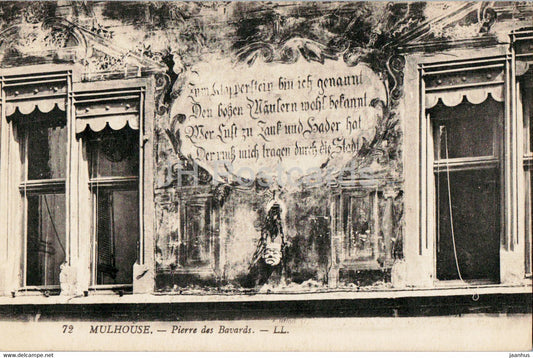 Zum Klapperstein bin ich genannt
Den boßen Mäulern wohl bekannt
Wer Lust zu Zank und Hader hat
Der muß mich tragen durch die Stadt
72 MULHOUSE. — Pierre des Bavards. — LL.
www.delcampe.net
jaanhus